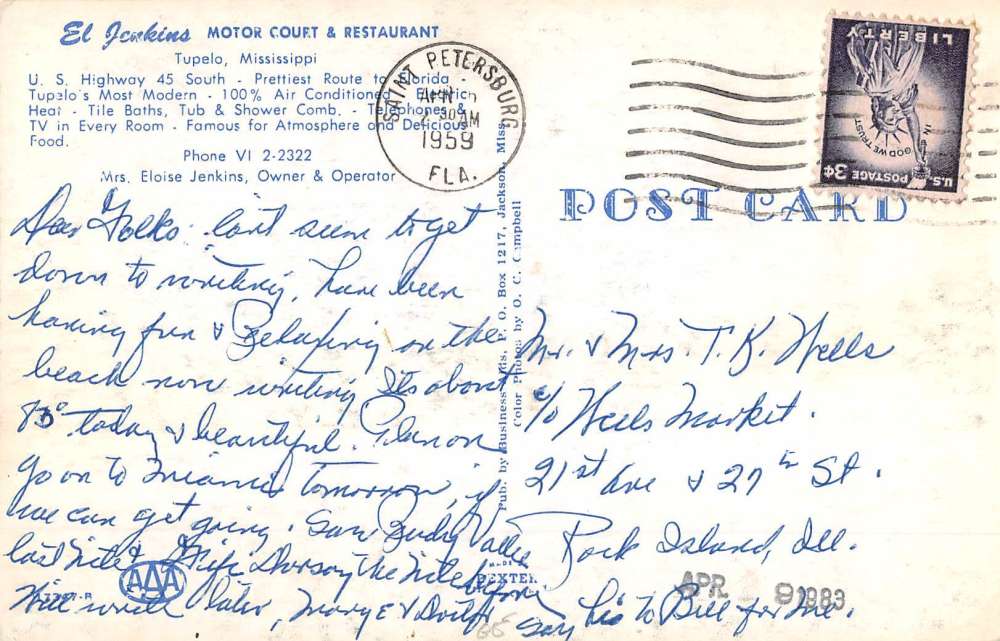 El Jenkins MOTOR COURT & RESTAURANT
Tupelo, Mississippi
U. S. Highway 45 South - Prettiest Route to Florida -
Tupelo's Most Modern - 100% Air Conditioned - Electric
Heat - Tile Baths, Tub & Shower Comb. - Telephones &
TV in Every Room - Famous for Atmosphere and Delicious
Food.
Phone VI 2-2322
Mrs. Eloise Jenkins, Owner & Operator
SAINT PETERSBURG
APR
2 30 AM
1959
FLA.
LIBERTY
IN GOD WE TRUST
U.S. POSTAGE 3¢
POST CARD
Dear Folks: can't seem to get
down to writing, have been
having fun & Relaxing on the
beach now writing Its about
83° today & beautiful. Plan on
go on to Miami tomorrow, if
we can get going. Saw Rudy Vallee
last nite & Dorsay the nite before
Will write later, Mary E &
say his to Bill for me.
Pub. by Business Ads, P. O. Box 1217, Jackson, Miss.
Color Photos by O. C. Campbell
Mr. & Mrs. T. K. Wells
c/o Wells Market.
21st ave & 27th St.
Rock Island, Ill.
MADE
DEXTER
AAA
APR 9 1983